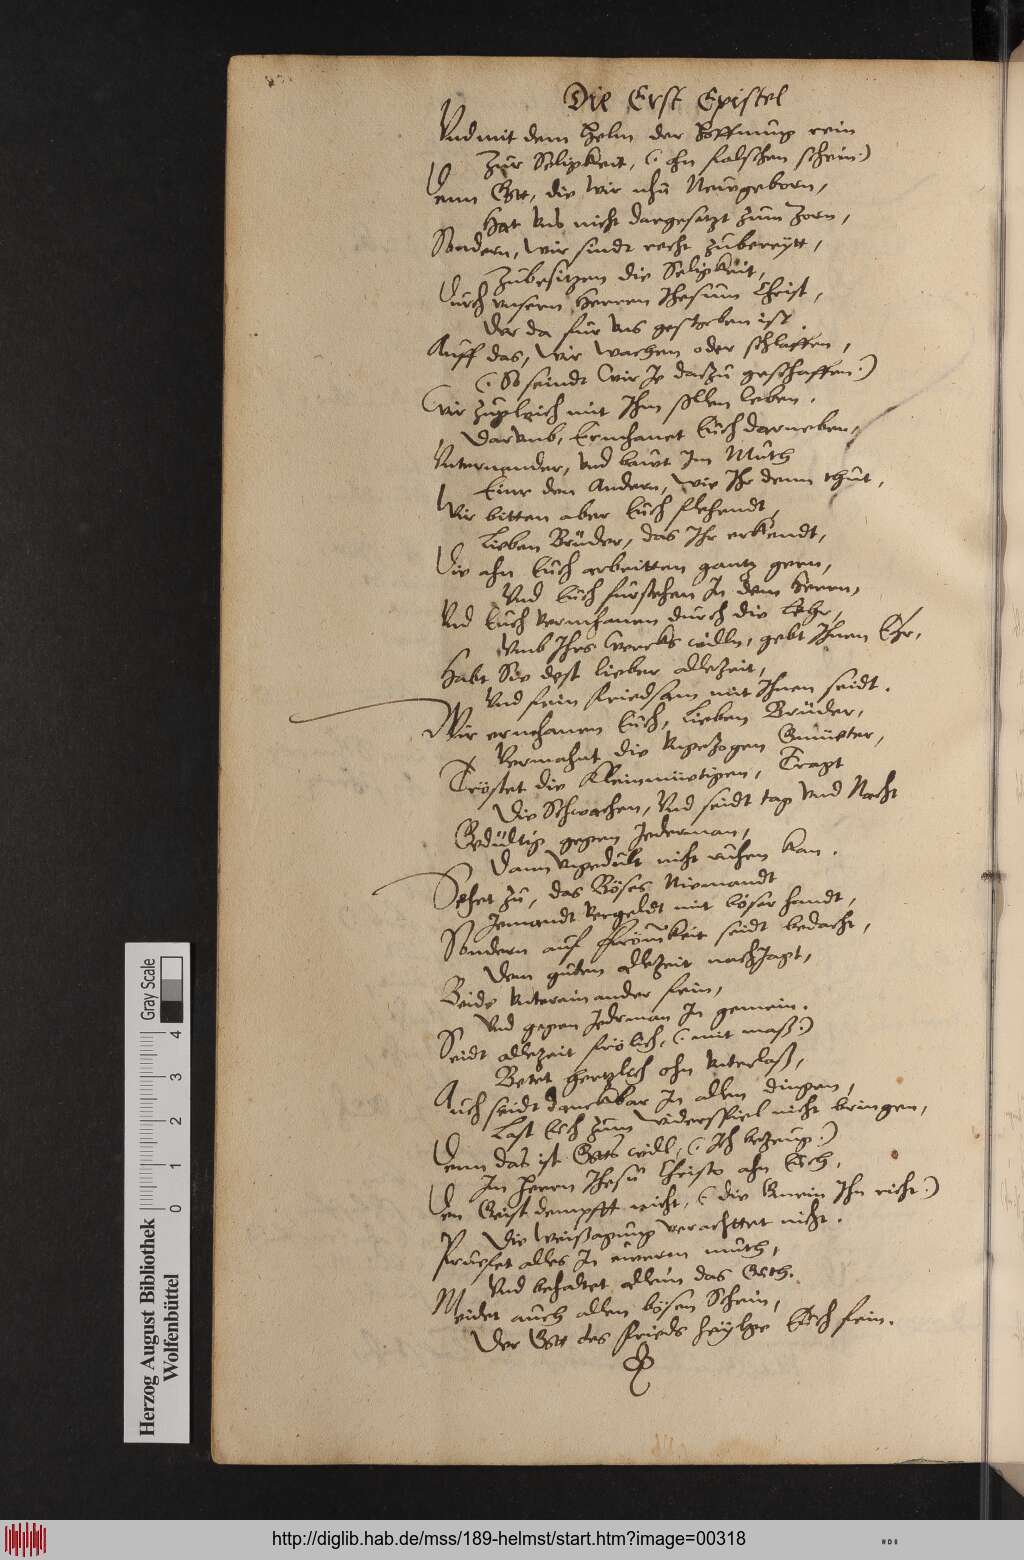 Die Erst Epistel
Vnd mit dem Helm der Hoffnung rein
Zur Seligkeit, (: ohn falschen schein :)
Denn Gott, die wir nhu Neuwgeborn,
Hat Vns nicht dargesetzt zum Zorn,
Sondern, Wir sindt recht zubereytt,
Zubesitzen die Seligkeit,
Durch vnsern Herren Jhesum Christ,
Der da für Vns gestorben ist
Auff das, Wir wachem oder schlaffen,
(: So seindt Wir Je dazu geschaffen :)
Wir zugleich mit Ihm sollen leben.
Darumb, Ermhanet Euch darneben,
Vnternander, Vnd bauwt Im Muth
Einr den Andern, wie Ihr denn thut,
Wir bitten aber Euch flehendt,
Lieben Brüder, das Ihr erkendt,
Die ahn Euch arbeitten gantz gern,
Vnd Euch fürstehen In dem Herrn,
Vnd Euch Vermhanen durch die Lehr,
Vmb Ihrs Wercks willn, gebt Ihnen Ehr,
Habt Sie dest lieber allezeit,
Vnd fein friedsam mit Ihnen seidt.
Wir ermhanen Euch, Lieben Brüder,
Vermahnt die Vngezogen Gmüeter,
Tröstet die Kleinmüetigen, Tragt
Die Schwachen, Vnd seidt tag Vnd Nacht
Gedültig gegen Jederman,
Dann Vngedult nicht ruhen kan.
Sehet zu, das Böses Niemandt
Jemandt Vergeldt mit böser handt,
Sondern auf Frömkeit seidt bedacht,
Dem guten allezeit nachJagt,
Beide Vntereinander fein,
Vnd gegen Jedrman In gemein.
Seidt allezeit frölich, (: mit maß :)
Betet hertzlich ohn Vnterlaß,
Auch seidt danckbar In allen dingen,
Last Euch zum widerspiel nicht bringen,
Denn das ist Gotts will, (: Ich bezeug :)
In Herrn Jhesu Christo ahn Euch.
Den Geist dempfft nicht, (: die Gmein Ihn richt :)
Die Weissagung verachttet nicht.
Prüefet alles In euwerm muth,
Vnd behaltet allein das Guth.
Meidet auch allen bösen Schein,
Der Gott des frieds heylge Euch fein.
Herzog August Bibliothek
Wolfenbüttel
0 1 2 3 4
Gray Scale
http://diglib.hab.de/mss/189-helmst/start.htm?image=00318